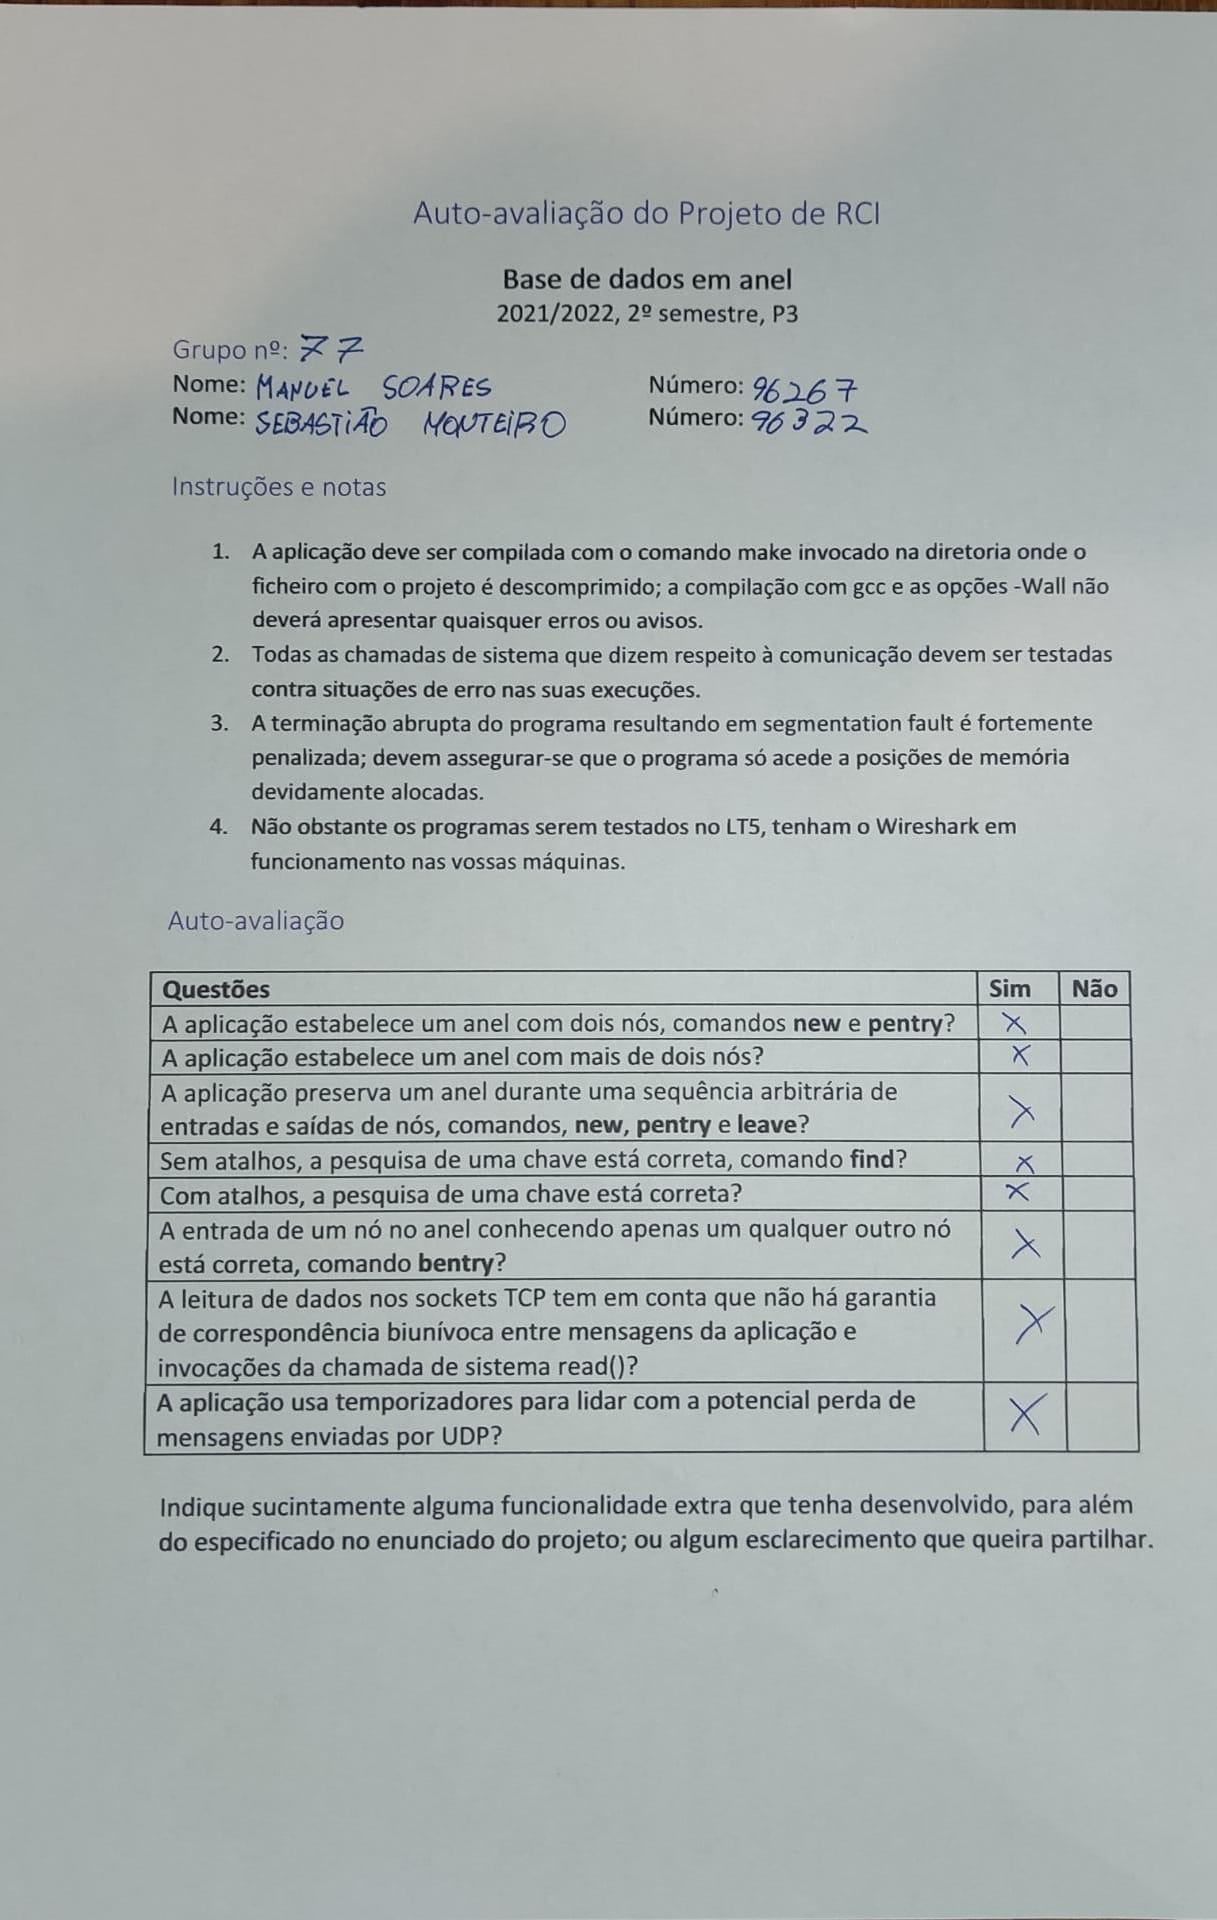 Auto-avaliação do Projeto de RCI
Base de dados em anel
2021/2022, 2º semestre, P3
Grupo nº: 77
Nome: MANUEL SOARES Número: 96267
Nome: SEBASTIÃO MONTEIRO Número: 96322
Instruções e notas
1. A aplicação deve ser compilada com o comando make invocado na diretoria onde o
ficheiro com o projeto é descomprimido; a compilação com gcc e as opções -Wall não
deverá apresentar quaisquer erros ou avisos.
2. Todas as chamadas de sistema que dizem respeito à comunicação devem ser testadas
contra situações de erro nas suas execuções.
3. A terminação abrupta do programa resultando em segmentation fault é fortemente
penalizada; devem assegurar-se que o programa só acede a posições de memória
devidamente alocadas.
4. Não obstante os programas serem testados no LT5, tenham o Wireshark em
funcionamento nas vossas máquinas.
Auto-avaliação
Questões Sim Não
A aplicação estabelece um anel com dois nós, comandos new e pentry? X
A aplicação estabelece um anel com mais de dois nós? X
A aplicação preserva um anel durante uma sequência arbitrária de
entradas e saídas de nós, comandos, new, pentry e leave? X
Sem atalhos, a pesquisa de uma chave está correta, comando find? X
Com atalhos, a pesquisa de uma chave está correta? X
A entrada de um nó no anel conhecendo apenas um qualquer outro nó
está correta, comando bentry? X
A leitura de dados nos sockets TCP tem em conta que não há garantia
de correspondência biunívoca entre mensagens da aplicação e X
invocações da chamada de sistema read()?
A aplicação usa temporizadores para lidar com a potencial perda de
mensagens enviadas por UDP? X
Indique sucintamente alguma funcionalidade extra que tenha desenvolvido, para além
do especificado no enunciado do projeto; ou algum esclarecimento que queira partilhar.